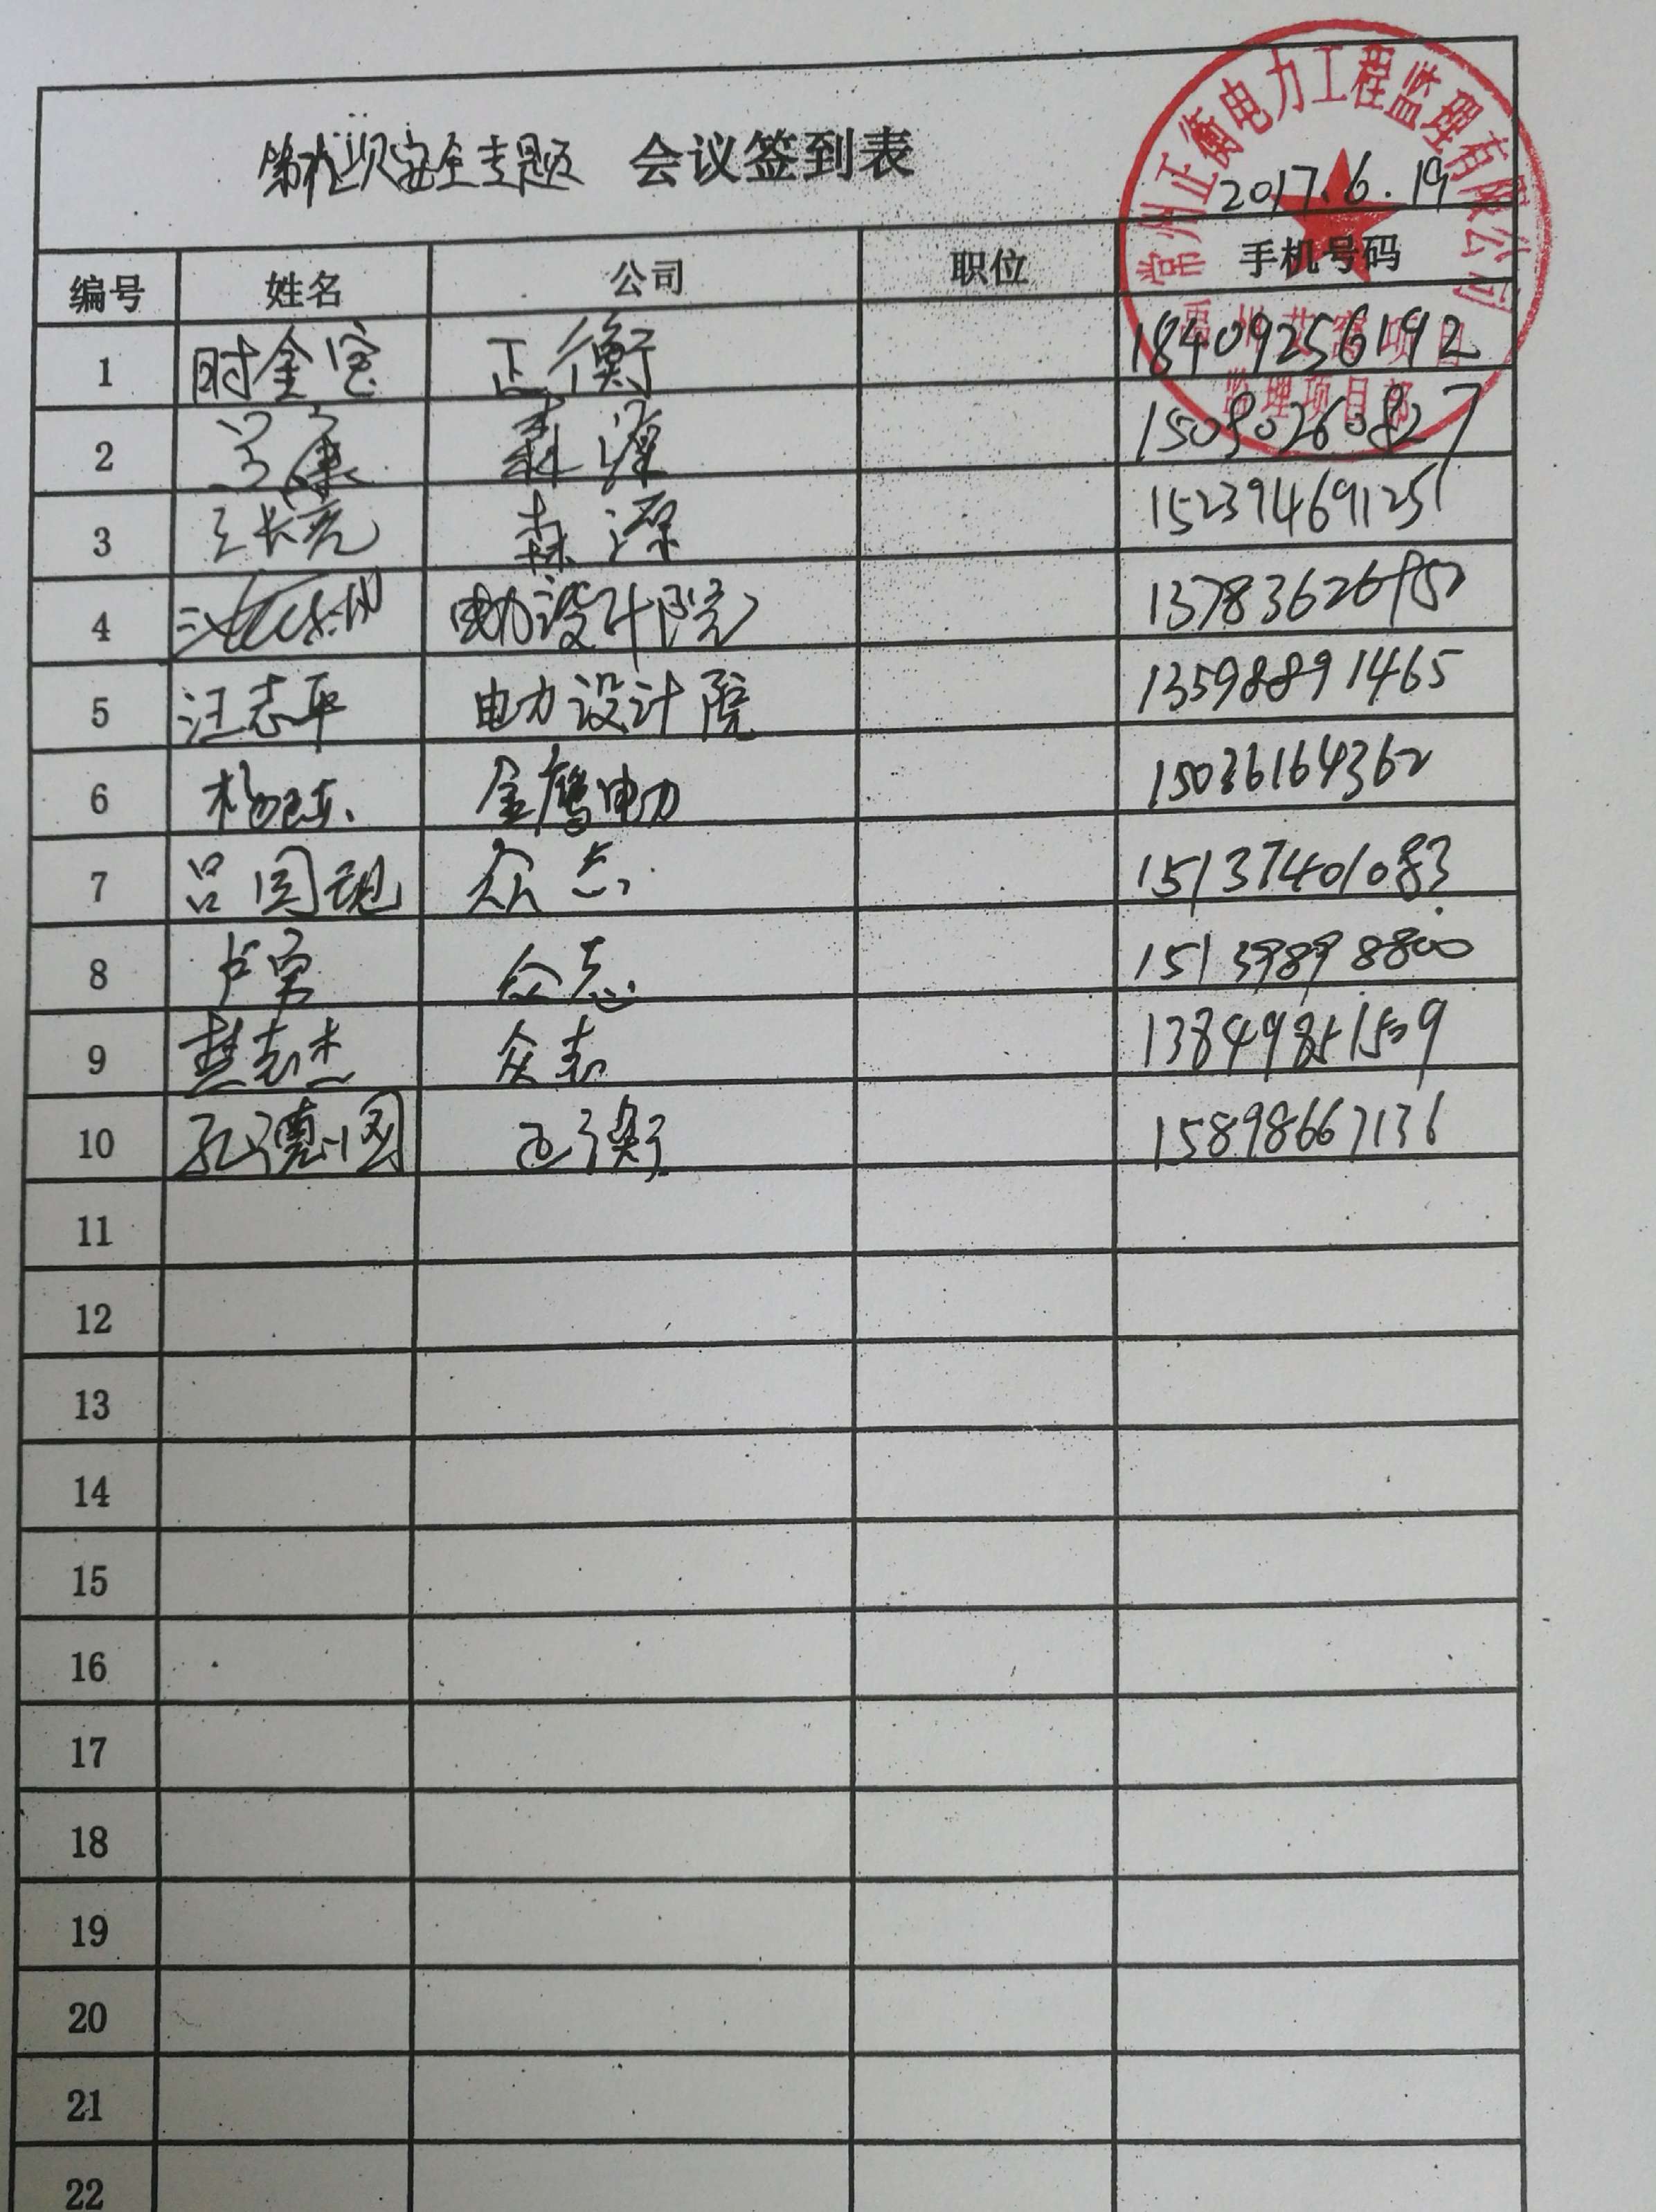 安全专题 会议签到表
常州正衡电力工程监理有限公司
2017.6.19
编号 姓名 公司 职位 手机号码
监理项目部
1 时金宝 正衡 18409256192
2 森源 15080260827
3 王长亮 森源 15239469125
4 电力设计院
5 汪志平 电力设计院 13598891465
6 金鹰电力 15036164362
7 吕国现 众志 15137401083
8 卢寅 众志 15139898800
9 楚志杰 众志 13849851509
10 孔德国 正衡 15898667136
11
12
13
14
15
16
17
18
19
20
21
22